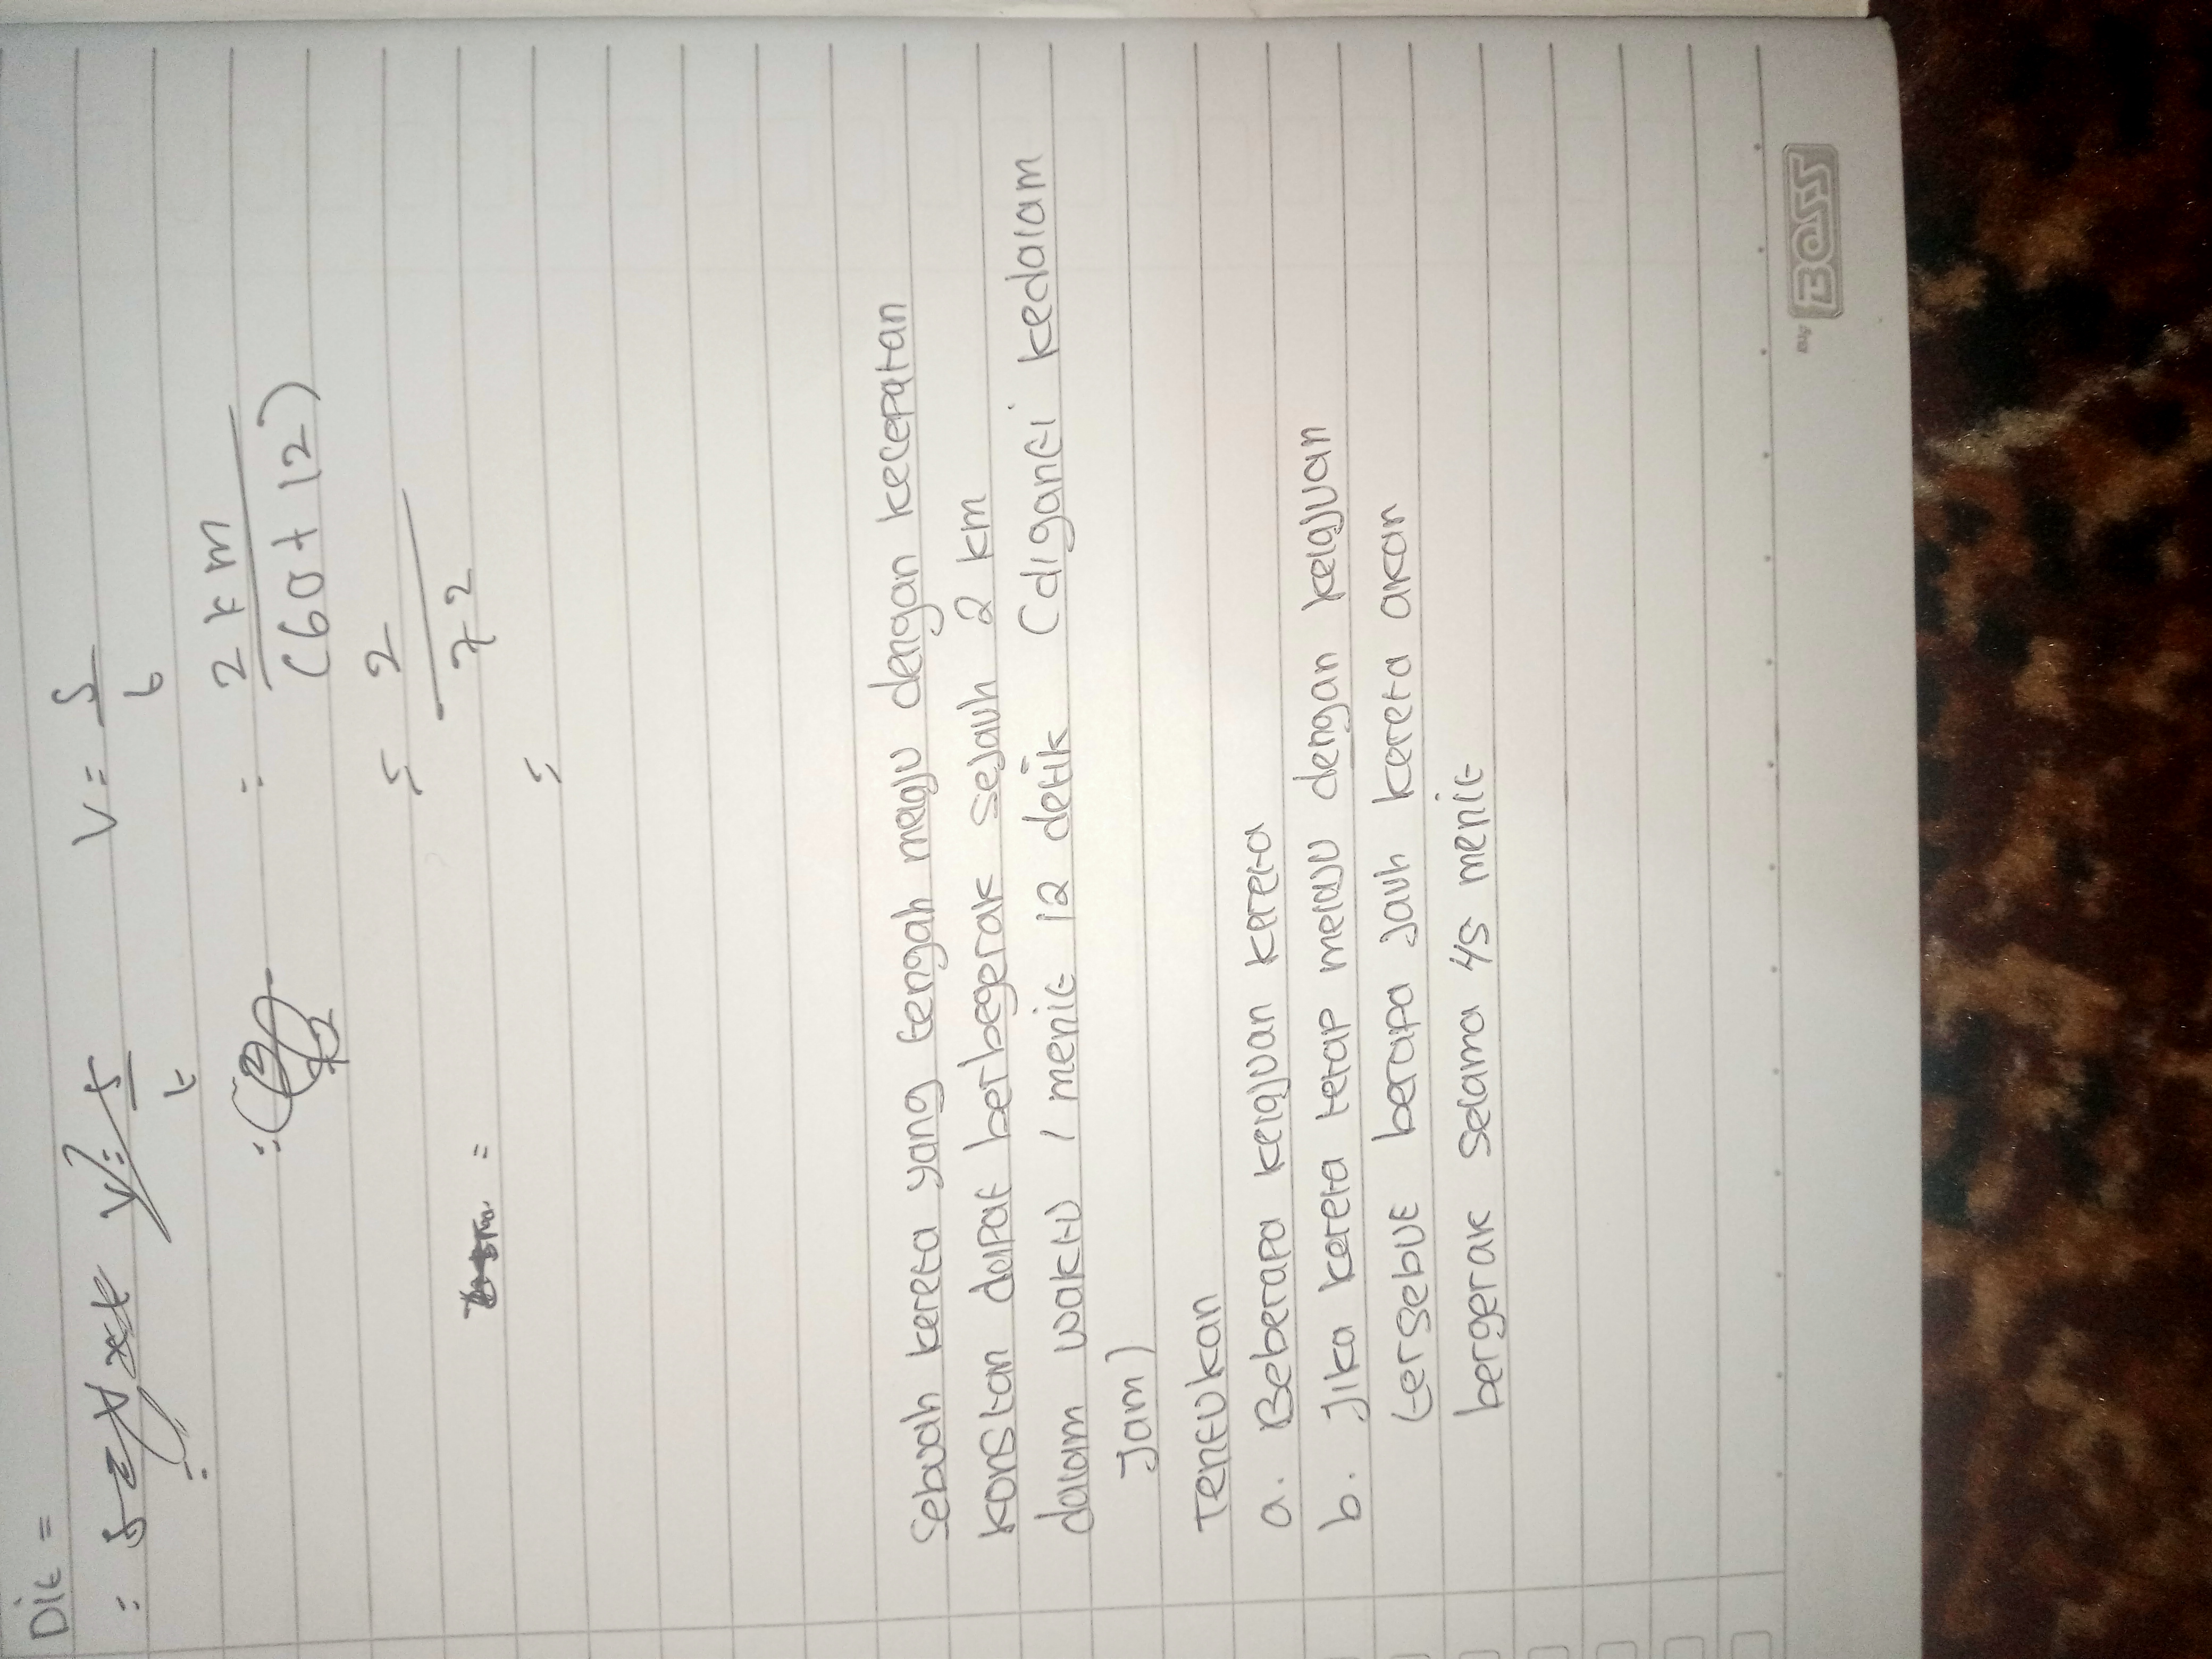 Dit =
V = S
t
= 2 km
(60 + 12)
= 2
72
=
Sebuah kereta yang tengah melaju dengan kecepatan
konstan dapat berbegerak sejauh 2 km
dalam waktu 1 menit 12 detik (diganti kedalam
Jam)
Tentukan
a. Beberapa kelajuan kereta
b. Jika kereta tetap melaju dengan kelajuan
tersebut berapa jauh kereta akan
bergerak selama 45 menit
by BOSS